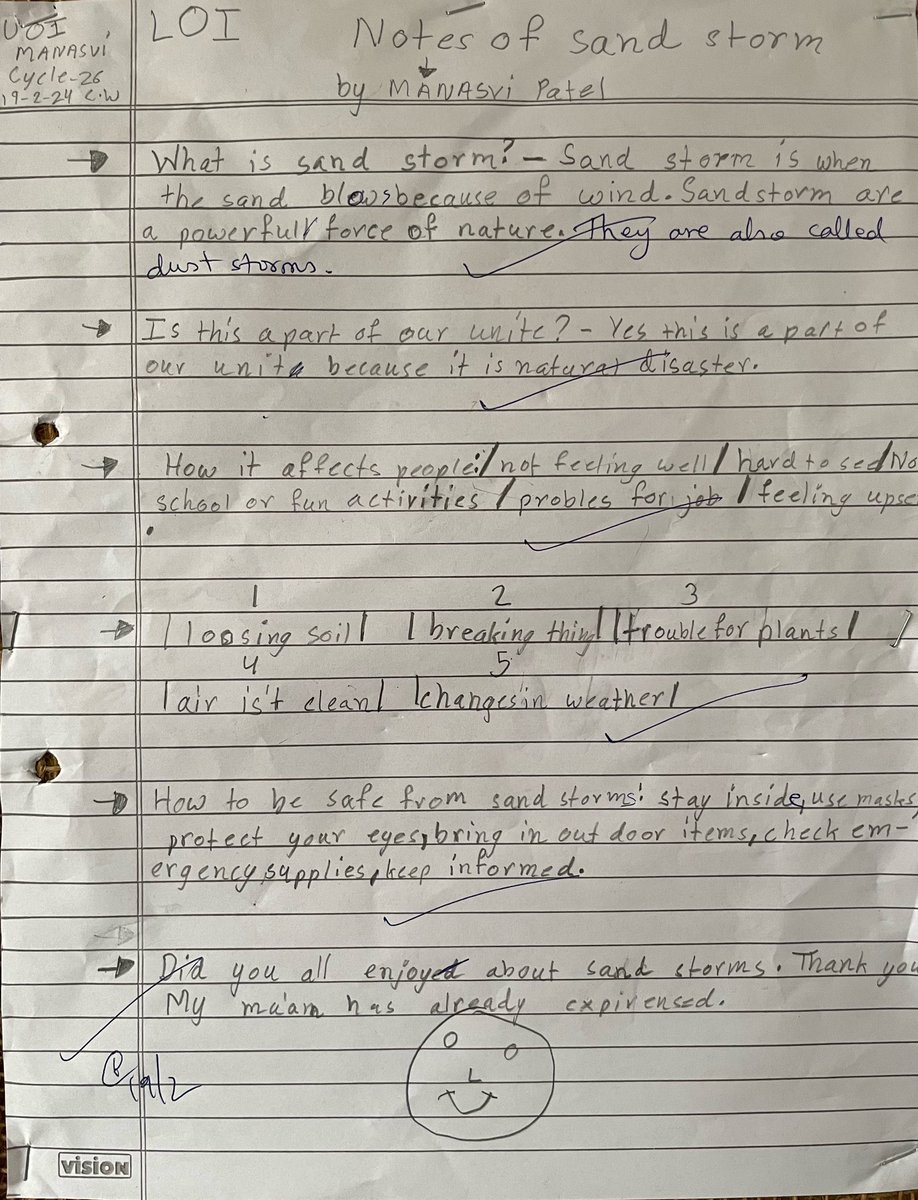 UOI
MANASVI
Cycle-26
19-2-24 C.W
LOI
Notes of sand storm
by MANASVI Patel
What is sand storm? - Sand storm is when
the sand blows because of wind. Sandstorm are
a powerfull force of nature. They are also called
dust storms.
Is this a part of our unite? - Yes this is a part of
our unit because it is natural disaster.
How it affects people:/ not feeling well / hard to see / No
school or fun activities / probles for job / feeling upse
1 2 3
/ loosing soil / / breaking thing / / trouble for plants /
4 5
/ air is't clean / / changes in weather /
How to be safe from sand storms: stay inside, use masks,
protect your eyes, bring in out door items, check em-
ergency supplies, keep informed.
Did you all enjoyed about sand storms. Thank you
My ma'am has already expirensed.
19/2
VISION